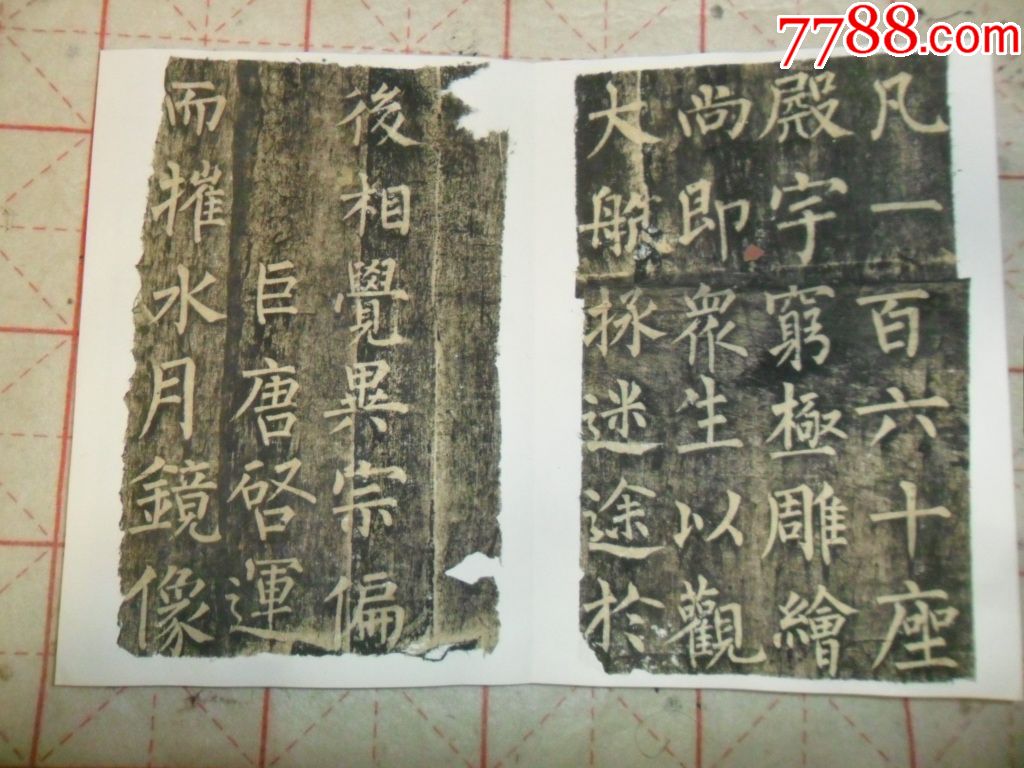 7788.com
凡一百六十座
殿宇窮極雕繪
尚即衆生以觀
大般拯迷途於
後相覺異宗偏
巨唐啓運
而摧水月鏡像